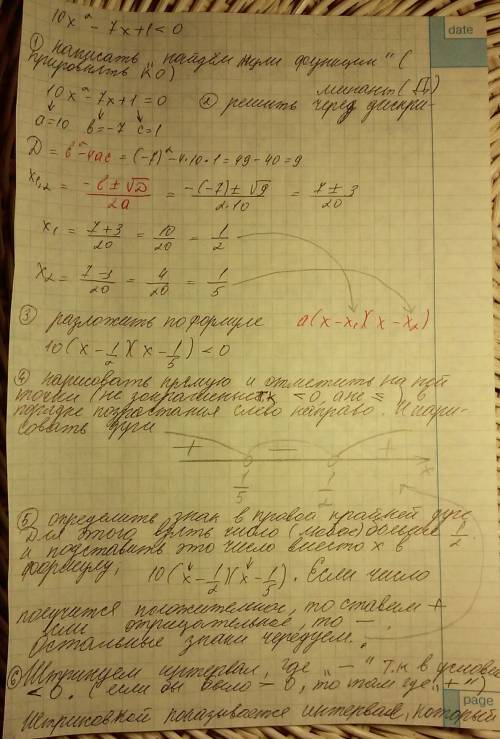 10x² - 7x + 1 < 0
date
① написать "найдём нули функции" (
приравнять к 0)
10x² - 7x + 1 = 0
② решить через дискри-
минант (√D)
a=10 b=-7 c=1
D = b² - 4ac = (-7)² - 4·10·1 = 49 - 40 = 9
x₁,₂ = (-b ± √D)/2a = (-(-7) ± √9)/(2·10) = (7 ± 3)/20
x₁ = (7+3)/20 = 10/20 = 1/2
x₂ = (7-3)/20 = 4/20 = 1/5
③ разложить по формуле a(x-x₁)(x-x₂)
10(x - 1/2)(x - 1/5) < 0
④ нарисовать прямую и отметить на ней
точки (не закрашенные т.к. < 0, а не ≤ в
порядке возрастания слева направо. И нари-
совать дуги
+ − +
1/5 1/2 x
⑤ определить знак в правой крайней дуге
Для этого взять число (любое) больше 1/2
и подставить это число вместо x в
формулу, 10(x - 1/2)(x - 1/5). Если число
получится положительное, то ставим +
если отрицательное, то −.
Остальные знаки чередуем.
⑥ Штрихуем интервал, где "−" т.к в условии
< 0. (если бы было > 0, то там где "+")
Штриховкой показывается интервал, который
page